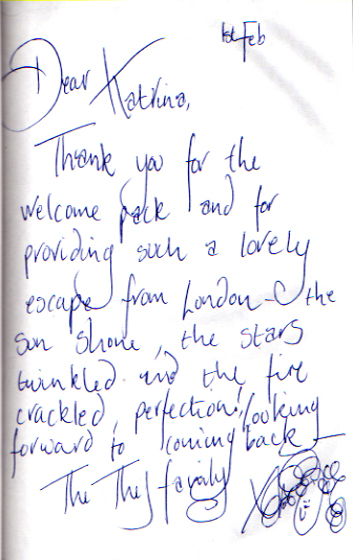 1st Feb
Dear Katrina,
Thank you for the
welcome pack and for
providing such a lovely
escape from London - the
sun shone, the stars
twinkled and the fire
crackled, perfection! looking
forward to coming back -
The family X